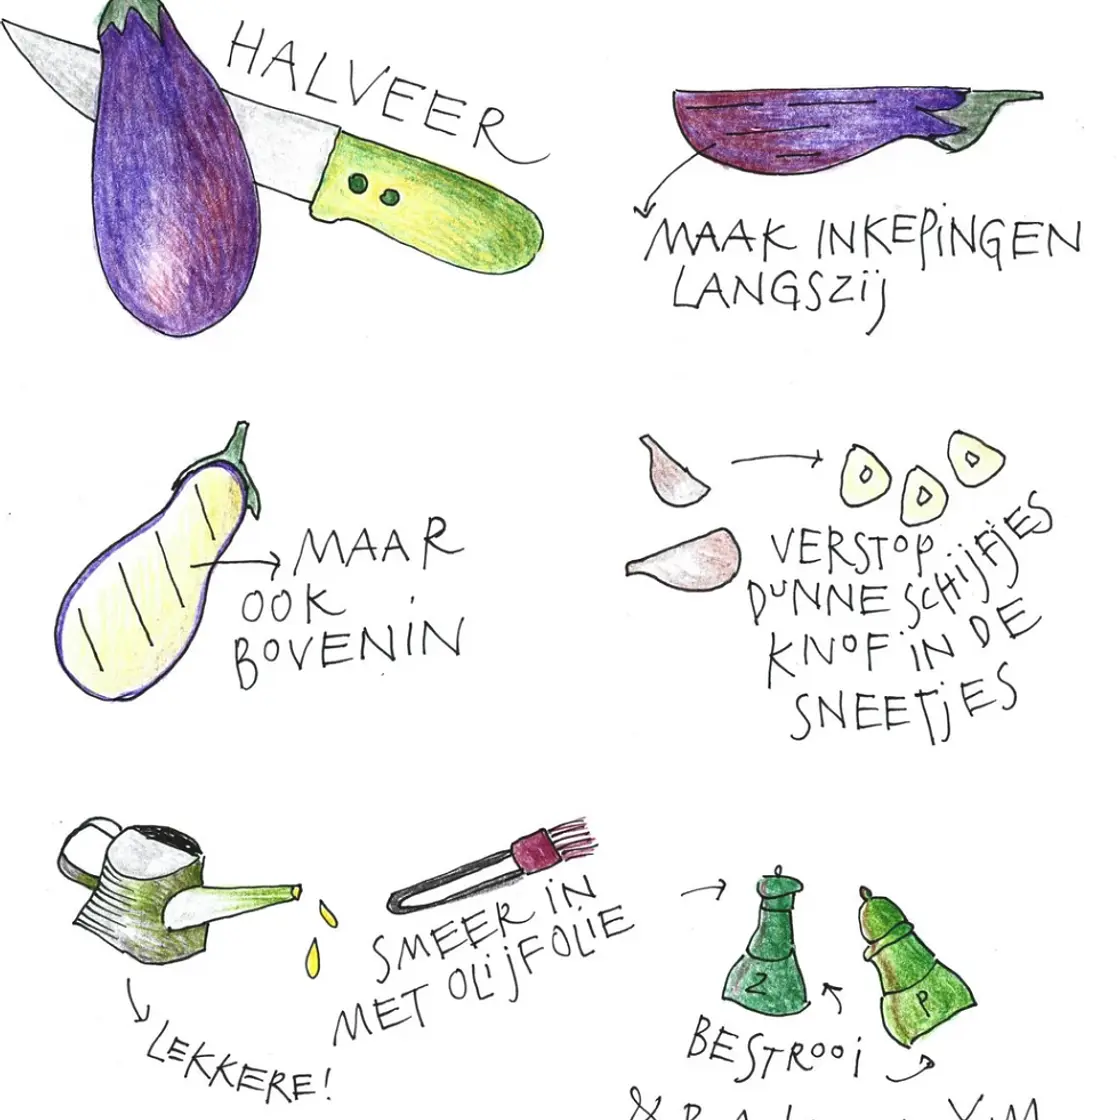 HALVEER
MAAK INKEPINGEN
LANGSZIJ
MAAR
OOK
BOVENIN
VERSTOP
DUNNE SCHIJFJES
KNOF IN DE
SNEETJES
LEKKERE!
SMEER IN
MET OLIJFOLIE
Z
P
BESTROOI